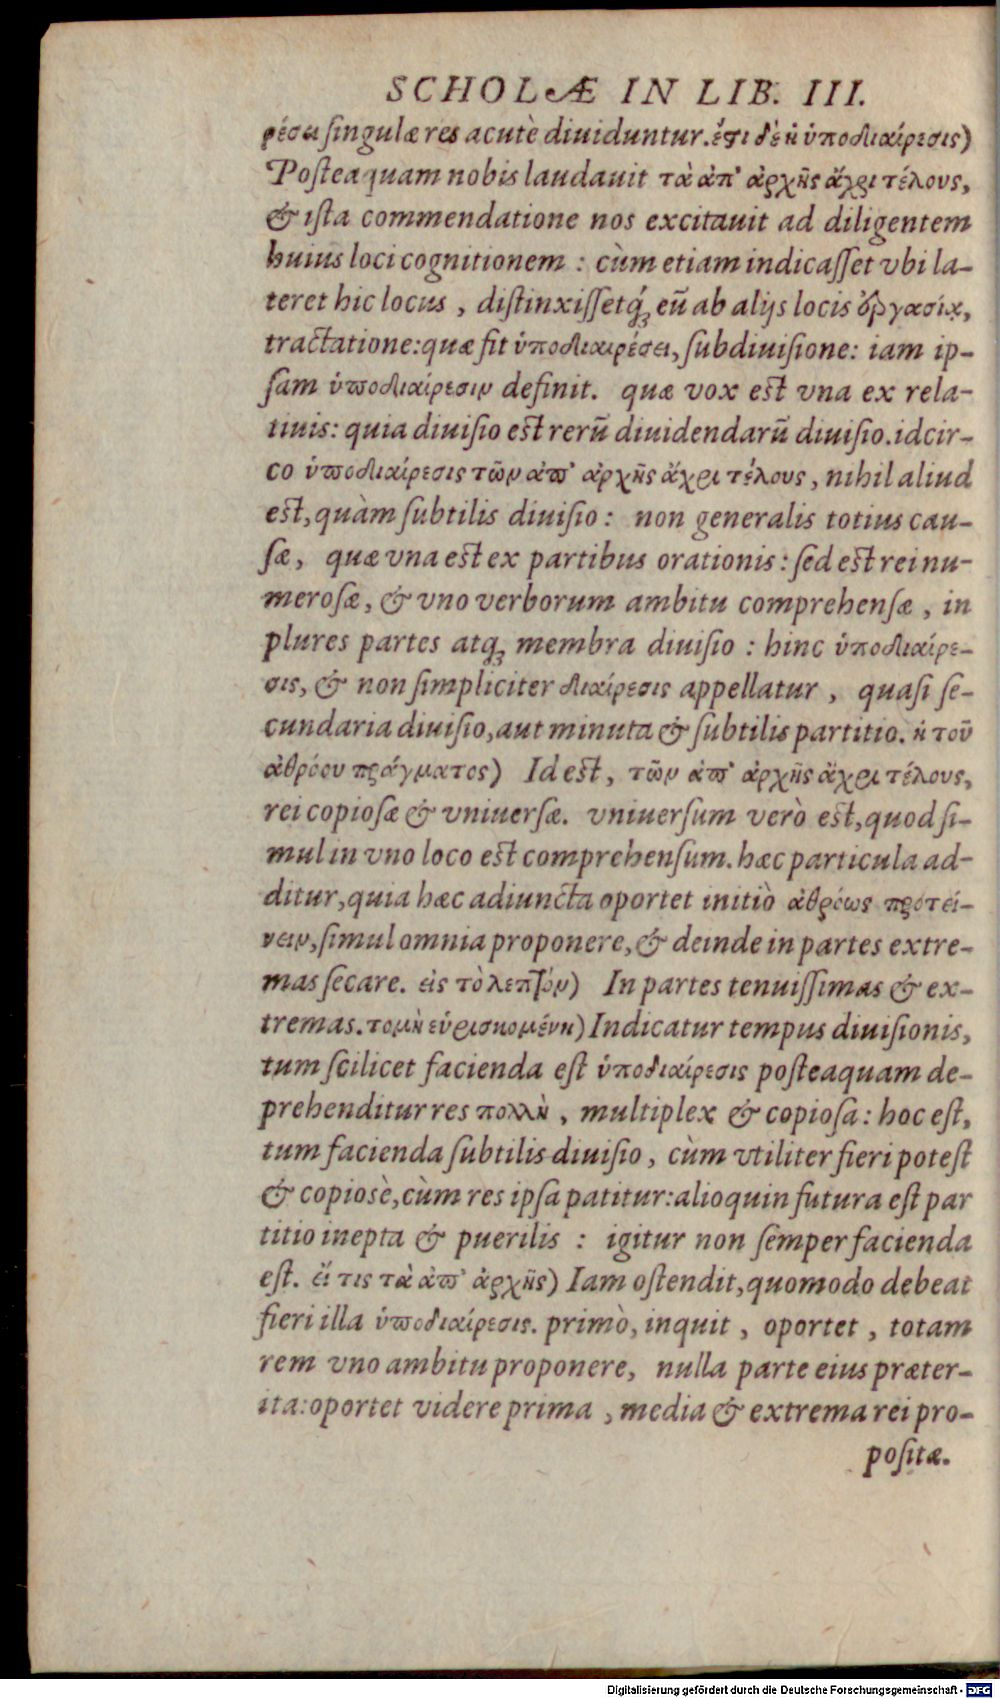 SCHOLÆ IN LIB. III.
ρέσει singulæ res acutè diuiduntur. ἔστι δὲ ἡ ὑποδιαίρεσις)
Posteaquam nobis laudauit τὰ ἀπ' ἀρχῆς ἄχρι τέλους,
& ista commendatione nos excitauit ad diligentem
huius loci cognitionem : cùm etiam indicasset vbi la-
teret hic locus , distinxissetq́; eũ ab alijs locis ἐργασίᾳ,
tractatione: quæ fit ὑποδιαιρέσει, subdiuisione: iam ip-
sam ὑποδιαίρεσιν definit. quæ vox est vna ex rela-
tiuis: quia diuisio est rerũ diuidendarũ diuisio. idcir-
co ὑποδιαίρεσις τῶν ἀπ' ἀρχῆς ἄχρι τέλους, nihil aliud
est, quàm subtilis diuisio : non generalis totius cau-
sæ, quæ vna est ex partibus orationis: sed est rei nu-
merosæ, & vno verborum ambitu comprehensæ , in
plures partes atq; membra diuisio : hinc ὑποδιαίρε-
σις, & non simpliciter διαίρεσις appellatur , quasi se-
cundaria diuisio, aut minuta & subtilis partitio. ἡ τοῦ
ἀθρόου πράγματος) Id est, τῶν ἀπ' ἀρχῆς ἄχρι τέλους,
rei copiosæ & vniuersæ. vniuersum verò est, quod si-
mul in vno loco est comprehensum. hæc particula ad-
ditur, quia hæc adiuncta oportet initiò ἀθρόως προτεί-
νειν, simul omnia proponere, & deinde in partes extre-
mas secare. εἰς τὸ λεπτόν) In partes tenuissimas & ex-
tremas. τομὴ εὑρισκομένη) Indicatur tempus diuisionis,
tum scilicet facienda est ὑποδιαίρεσις posteaquam de-
prehenditur res πολλὴ , multiplex & copiosa: hoc est,
tum facienda subtilis diuisio , cùm vtiliter fieri potest
& copiosè, cùm res ipsa patitur: alioquin futura est par
titio inepta & puerilis : igitur non semper facienda
est. εἴ τις τὰ ἀπ' ἀρχῆς) Iam ostendit, quomodo debeat
fieri illa ὑποδιαίρεσις. primò, inquit , oportet , totam
rem vno ambitu proponere, nulla parte eius præter-
ita: oportet videre prima , media & extrema rei pro-
positæ.
Digitalisierung gefördert durch die Deutsche Forschungsgemeinschaft - DFG